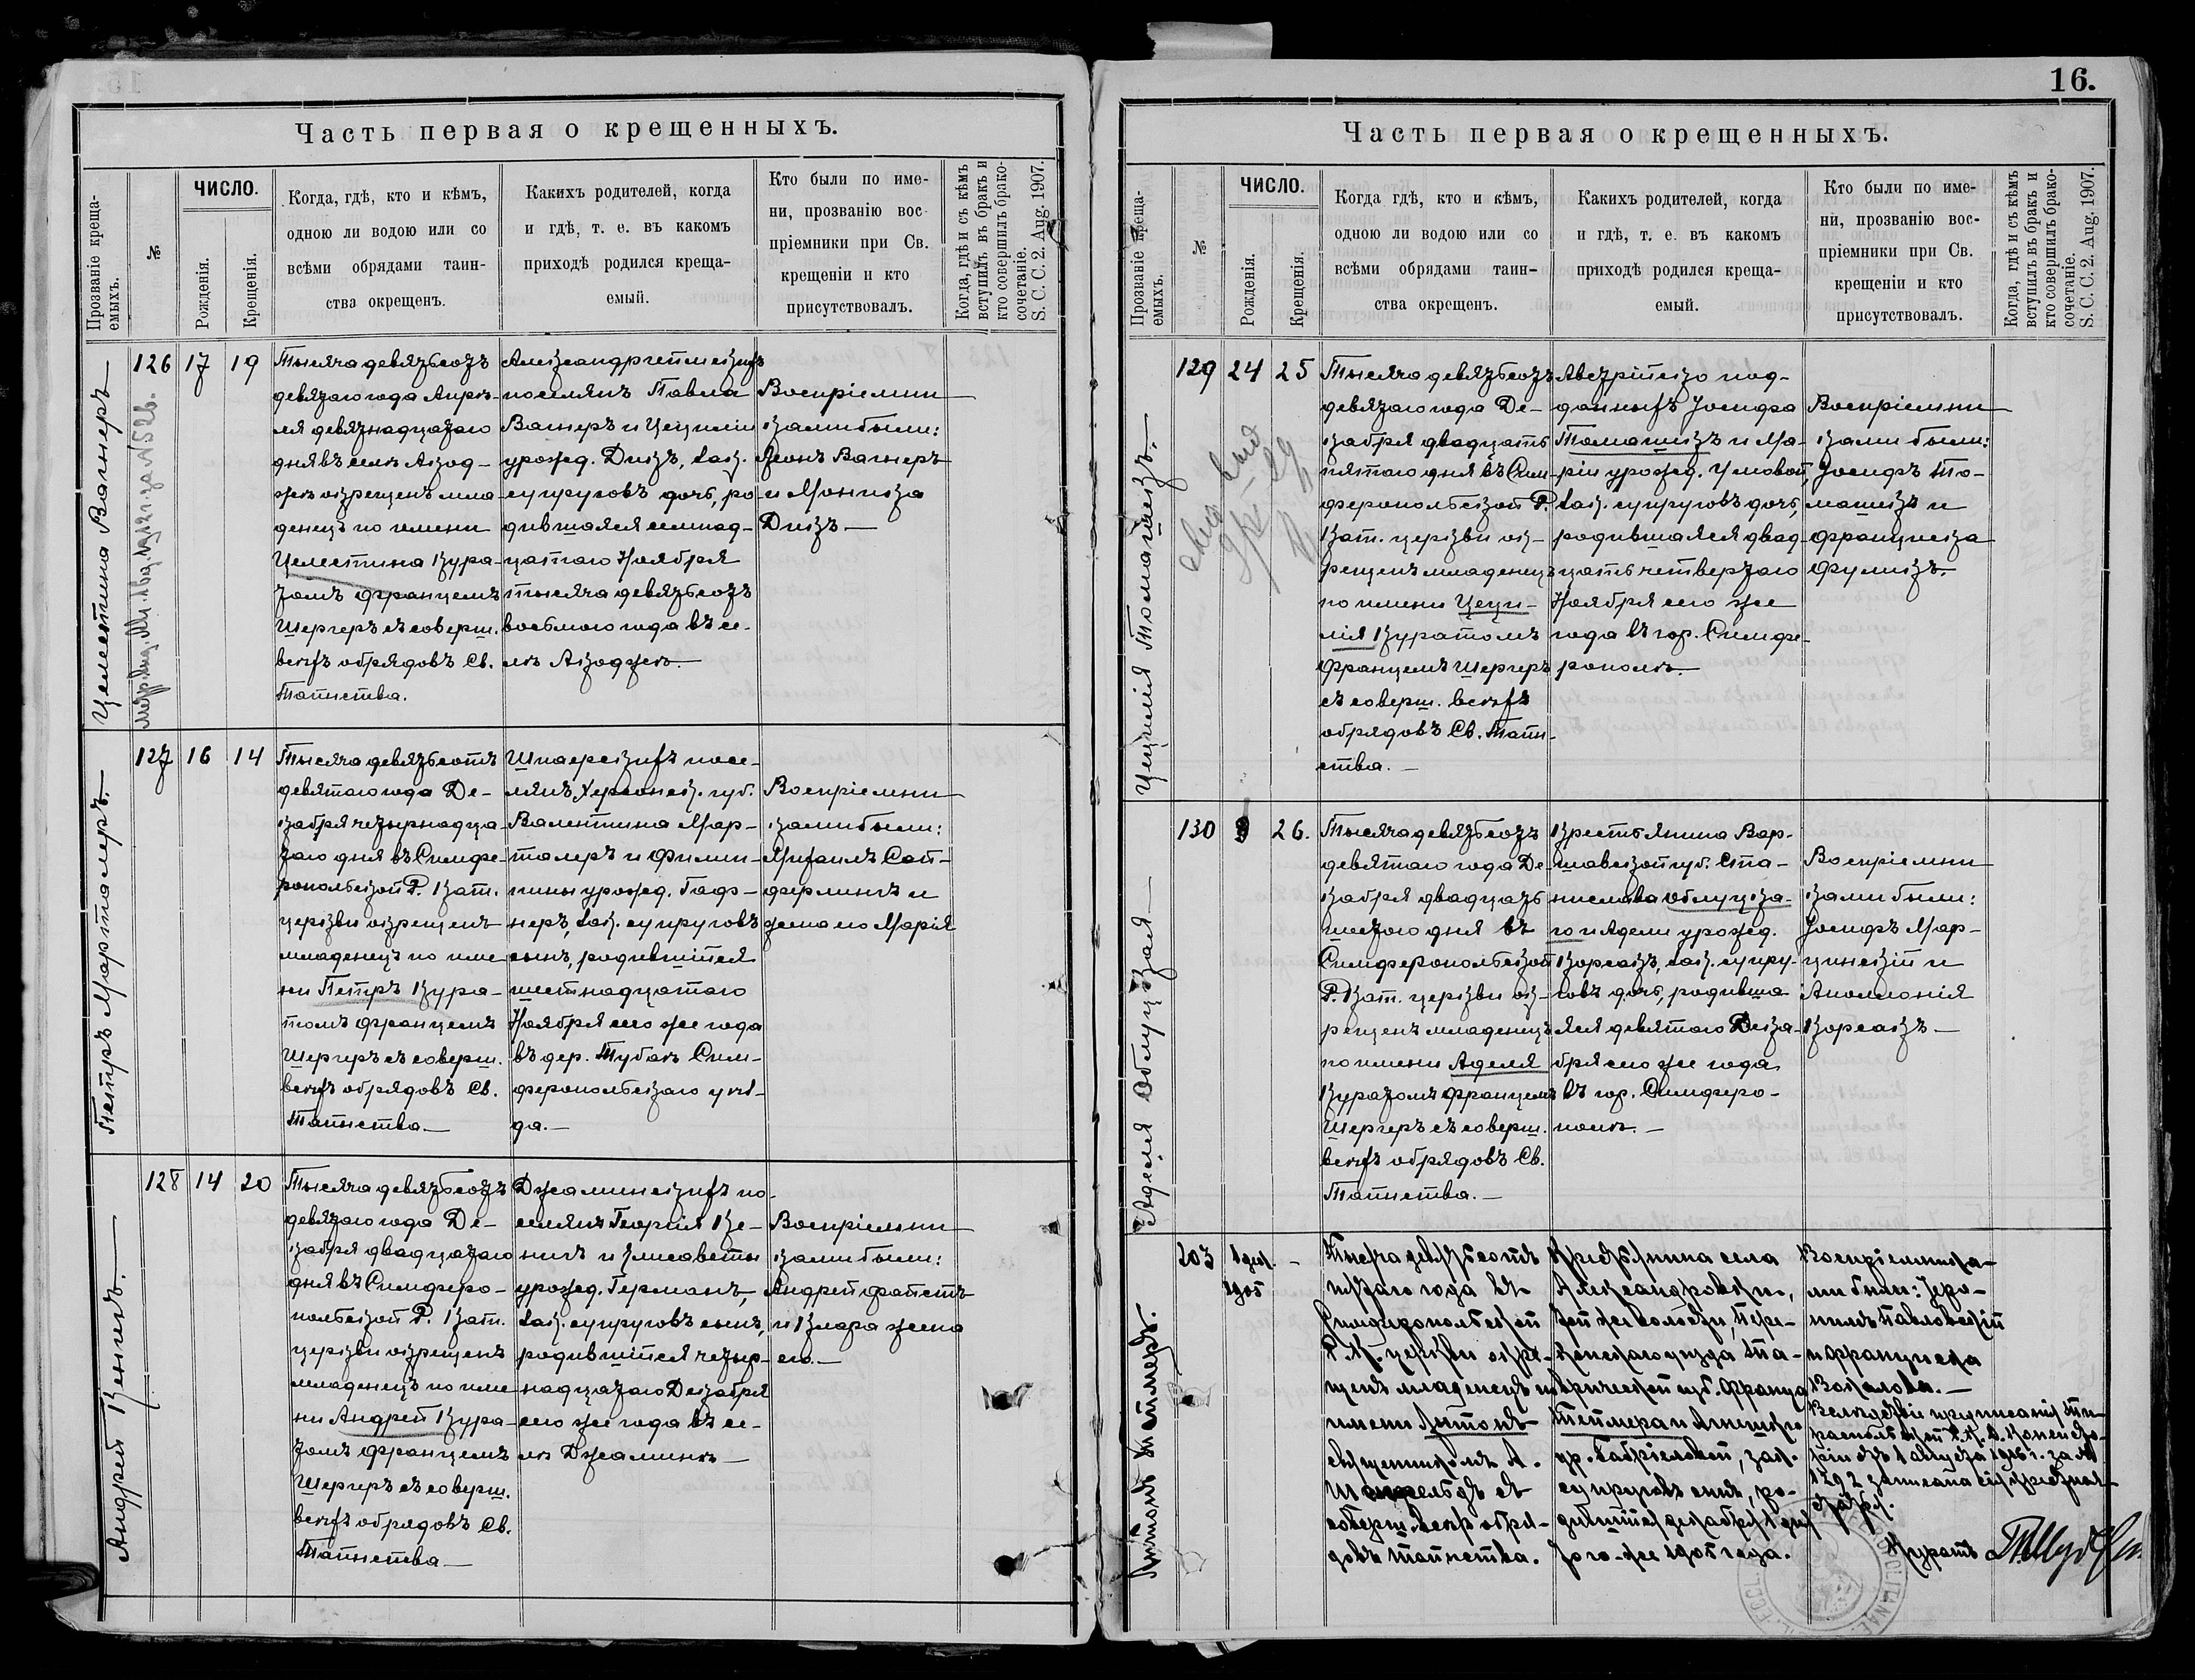 Часть первая о крещенныхъ.
Прозваніе креща-
емыхъ.
№
ЧИСЛО.
Рожденія.
Крещенія.
Когда, гдѣ, кто и кѣмъ,
одною ли водою или со
всѣми обрядами таин-
ства окрещенъ.
Какихъ родителей, когда
и гдѣ, т. е. въ какомъ
приходѣ родился креща-
емый.
Кто были по име-
ни, прозванію вос-
пріемники при Св.
крещеніи и кто
присутствовалъ.
Когда, гдѣ и съ кѣмъ
вступилъ въ бракъ и
кто совершилъ брако-
сочетаніе.
S. C. C. 2. Aug. 1907.
Целестина Вагнеръ
126
17
19
Тысяча девятьсотъ
девятаго года Апрѣ-
ля девятнадцатаго
дня въ селѣ Акод-
жѣ окрещенъ мла-
денецъ по имени
Целестина Кура-
томъ Францемъ
Шергеръ съ соверш.
всѣхъ обрядовъ Св.
Таинства.
поселянъ Павла
Вагнеръ и Цециліи
урожд. Дикъ, зак.
супруговъ дочь, ро-
дившаяся семнад-
цатаго Ноября
тысяча девятьсотъ
восьмого года въ се-
лѣ Акоджѣ.
Воспріемни-
ками были:
Леонъ Вагнеръ
и Моника
Дикъ
Петръ Марталеръ.
127
16
14
Тысяча девятьсотъ
девятаго года Де-
кабря четырнадца-
таго дня въ Симфе-
ропольской Р. Кат.
церкви окрещенъ
младенецъ по име-
ни Петръ Кура-
томъ Францемъ
Шергеръ съ соверш.
всѣхъ обрядовъ Св.
Таинства
посе-
лянъ Херсонск. губ.
Валентина Мар-
талеръ и Филип-
пины урожд. Гаф-
неръ, зак. супруговъ
сынъ, родившійся
шестнадцатаго
Ноября сего же года
въ дер. Тубаѣ Сим-
феропольскаго уѣз-
да.
Воспріемни-
ками были:
Михаилъ Сат-
ферлингъ и
жена его Марія
Андрей Кенигъ.
128
14
20
Тысяча девятьсотъ
девятаго года Де-
кабря двадцатаго
дня въ Симферо-
польской Р. Кат.
церкви окрещенъ
младенецъ по име-
ни Андрей Кура-
томъ Францемъ
Шергеръ съ соверш.
всѣхъ обрядовъ Св.
Таинства
Джаминскихъ по-
селянъ Георгія Ке-
нигъ и Елисаветы
урожд. Германъ,
зак. супруговъ сынъ,
родившійся четыр-
надцатаго Декабря
сего же года въ се-
лѣ Джаминѣ
Воспріемни-
ками были:
Андрей Файстъ
и Клара жена
его.
16.
Часть первая о крещенныхъ.
Прозваніе креща-
емыхъ.
№
ЧИСЛО.
Рожденія.
Крещенія.
Когда гдѣ, кто и кѣмъ,
одною ли водою или со
всѣми обрядами таин-
ства окрещенъ.
Какихъ родителей, когда
и гдѣ, т. е. въ какомъ
приходѣ родился креща-
емый.
Кто были по име-
ни, прозванію вос-
пріемники при Св.
крещеніи и кто
присутствовалъ.
Когда, гдѣ и съ кѣмъ
вступилъ въ бракъ и
кто совершилъ брако-
сочетаніе.
S. C. C. 2. Aug. 1907.
Цецилія Томашекъ.
129
24
25
Тысяча девятьсотъ
девятаго года Де-
кабря двадцать
пятаго дня въ Сим-
феропольской Р.
Кат. церкви ок-
рещенъ младенецъ
по имени Цеци-
лія Куратомъ
Францемъ Шергеръ
съ соверш. всѣхъ
обрядовъ Св. Таин-
ства.
Австрійско под-
данныхъ Іосифа
Томашекъ и Ма-
ріи урожд.
зак. супруговъ дочь,
родившаяся двад-
цать четвертаго
Ноября сего же
года въ гор. Симфе-
рополѣ.
Воспріемни-
ками были:
Іосифъ То-
машекъ и
Франциска
Фуликъ.
Аделя Облуцкая
130
9
26.
Тысяча девятьсотъ
девятаго года Де-
кабря двадцать
шестого дня въ
Симферопольской
Р. Кат. церкви ок-
рещенъ младенецъ
по имени Аделя
Куратомъ Францемъ
Шергеръ съ соверш.
всѣхъ обрядовъ Св.
Таинства.
Крестьянина Вар-
шавской губ. Ста-
нислава Облуцка-
го и Адели урожд.
Корсакъ, зак. супру-
говъ дочь, родивша-
яся девятаго Дека-
бря сего же года
въ гор. Симферо-
полѣ.
Воспріемни-
ками были:
Іосифъ Мар-
цинскій и
Аполлонія
Корсакъ
Антонъ Теймеръ.
203
1 дек.
1905
-
Тысяча девятьсотъ
пятаго года въ
Симферопольской
Р. К. церкви окре-
щенъ младенецъ по
имени Антонъ
священникомъ А.
съ
соверш. всѣхъ обря-
довъ таинства.
Крестьянина села
Александровки,
той же волости, Пере-
копскаго уѣзда Та-
врической губ. Франца
Теймера и
ур. Габріеловой, зак.
супруговъ сынъ, ро-
дившійся декабря 1 дня
того-же 1905 года.
Воспріемника-
ми были: Іеро-
нимъ Павловскій
и Франциска
Вслѣдствіе предписанія Ти-
распольской Р. К. Д. Консисто-
ріи отъ 1 августа 1916 г. за №
1292 записана сія крестная
Куратъ